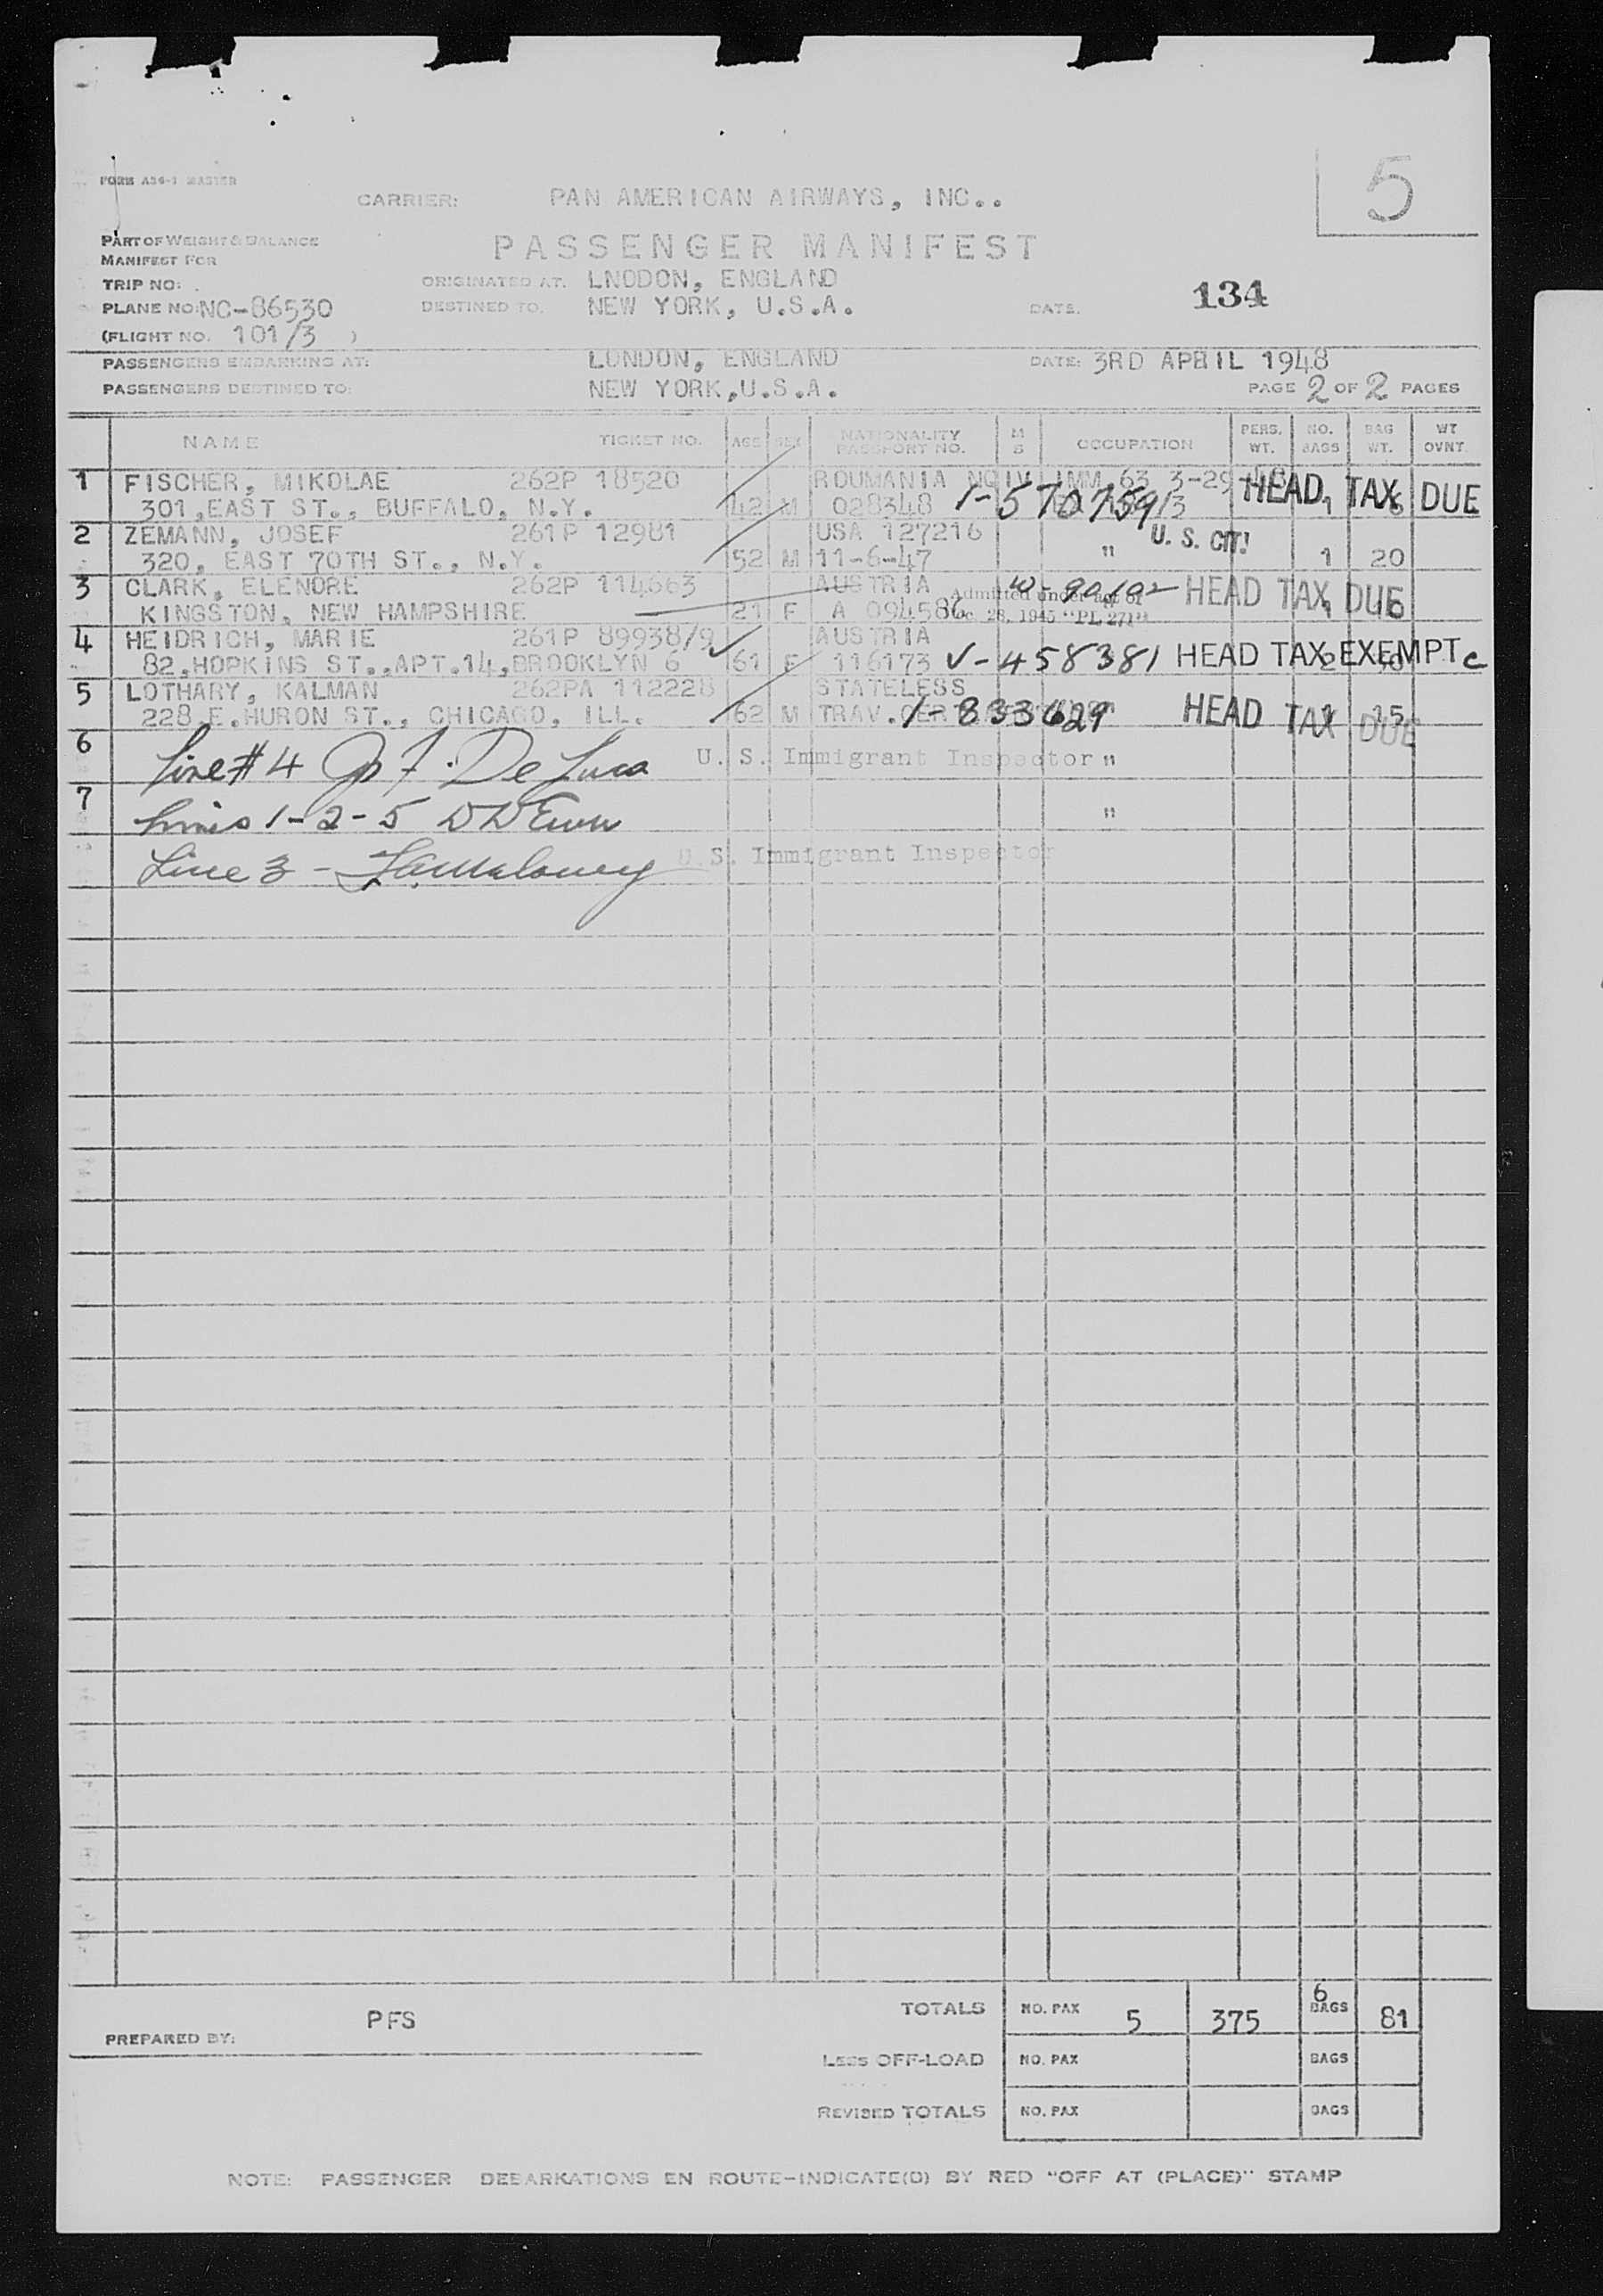 5
FORM A34-1 MASTER
CARRIER: PAN AMERICAN AIRWAYS, INC..
PART OF WEIGHT & BALANCE
MANIFEST FOR
PASSENGER MANIFEST
TRIP NO: ORIGINATED AT. LNODON, ENGLAND
134
PLANE NO: NC-86530 DESTINED TO. NEW YORK, U.S.A. DATE.
(FLIGHT NO. 101/3 )
PASSENGERS EMBARKING AT: LONDON, ENGLAND DATE: 3RD APRIL 1948
PASSENGERS DESTINED TO: NEW YORK,U.S.A. PAGE 2 OF 2 PAGES
NAME TICKET NO. AGE SEX NATIONALITY PASSPORT NO. M S OCCUPATION PERS. WT. NO. BAGS BAG WT. WT OVNT.
1 FISCHER, MIKOLAE 262P 18520 ROUMANIA NQ IV IMM 63 3-29-48
301,EAST ST., BUFFALO, N.Y. 42 M 028348 1-570759/3 HEAD TAX DUE
2 ZEMANN, JOSEF 261P 12981 USA 127216
320, EAST 70TH ST., N.Y. 52 M 11-6-47 " U. S. CIT! 1 20
3 CLARK, ELENORE 262P 114663 AUSTRIA Admitted under act of W-90102 HEAD TAX DUE
KINGSTON, NEW HAMPSHIRE 21 F A 094586 Dec. 28, 1945 "PL 271"
4 HEIDRICH, MARIE 261P 89938/9 AUSTRIA
82,HOPKINS ST.,APT.14,BROOKLYN 6 61 F 116173 V-458381 HEAD TAX EXEMPT c
5 LOTHARY, KALMAN 262PA 112228 STATELESS
228,E.HURON ST., CHICAGO, ILL. 62 M TRAV.CER 1-833629 HEAD TAX DUE 15
6 Line # 4 Jos F. De Luca U. S. Immigrant Inspector "
7
Lines 1-2-5 "
Line 3 - U. S. Immigrant Inspector
TOTALS NO. PAX 5 375 6 BAGS 81
PFS
PREPARED BY:
LESS OFF-LOAD NO. PAX BAGS
REVISED TOTALS NO. PAX BAGS
NOTE: PASSENGER DEBARKATIONS EN ROUTE-INDICATE(D) BY RED "OFF AT (PLACE)" STAMP